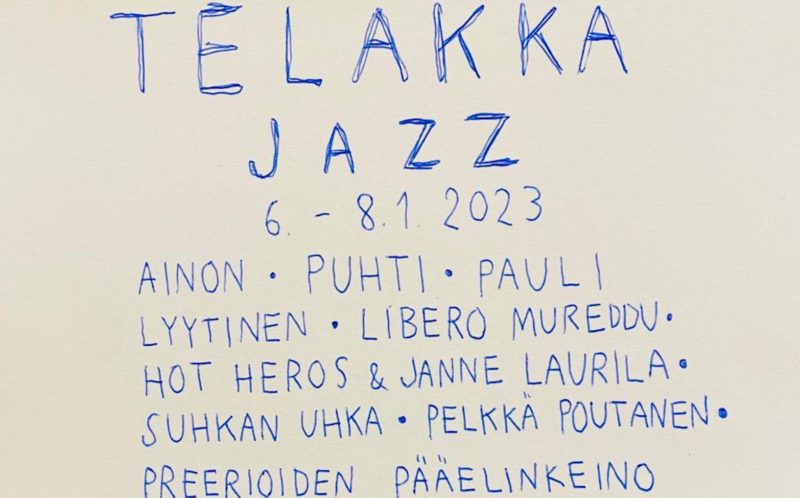 TELAKKA
JAZZ
6. - 8.1. 2023
AINON • PUHTI • PAULI
LYYTINEN • LIBERO MUREDDU •
HOT HEROS & JANNE LAURILA •
SUHKAN UHKA • PELKKÄ POUTANEN •
PREERIOIDEN PÄÄELINKEINO